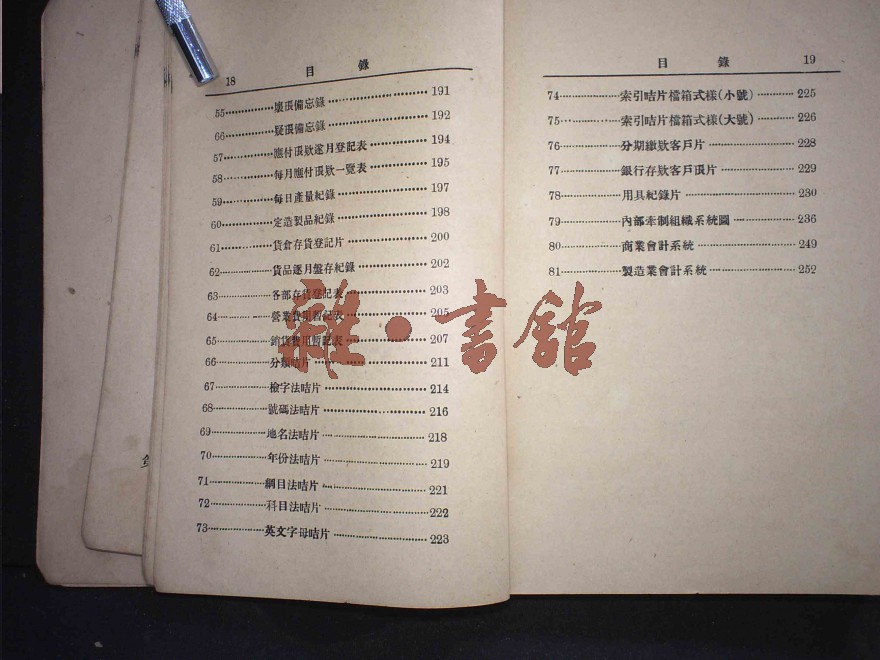 18 目 錄
55 壞賬備忘錄 191
66 疑賬備忘錄 192
57 應付賬欵逐月登記表 194
58 每月應付賬欵一覽表 195
59 每日產量紀錄 197
60 定造製品紀錄 198
61 貨倉存貨登記片 200
62 貨品逐月盤存紀錄 202
63 各部存貨登記表 203
64 營業費用暫記表 205
65 銷貨費用暫記表 207
66 分類咭片 211
67 檢字法咭片 214
68 號碼法咭片 216
69 地名法咭片 218
70 年份法咭片 219
71 綱目法咭片 221
72 科目法咭片 222
73 英文字母咭片 223
目 錄 19
74 索引咭片檔箱式樣(小號) 225
75 索引咭片檔箱式樣(大號) 226
76 分期繳欵客戶片 228
77 銀行存欵客戶賬片 229
78 用具紀錄片 230
79 內部牽制組織系統圖 236
80 商業會計系統 249
81 製造業會計系統 252
雜·書館